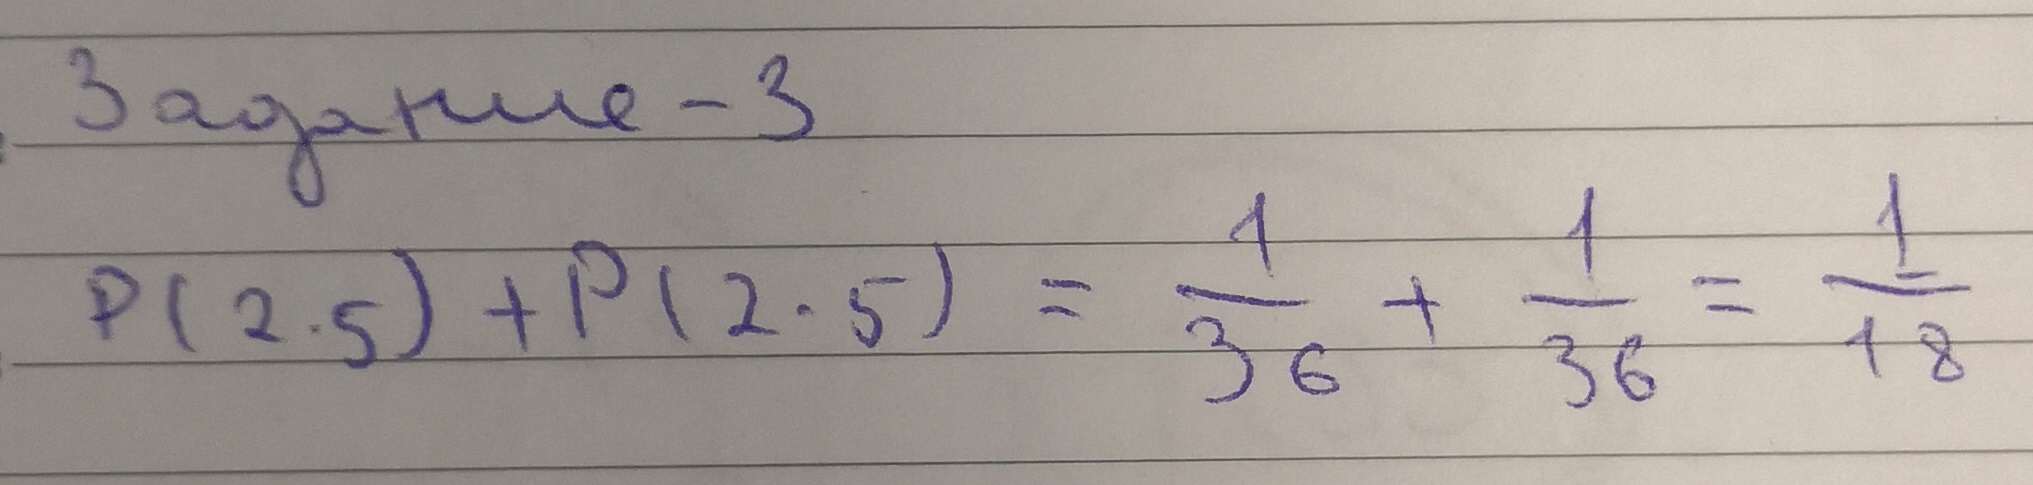 Задание-3
P(2.5) + P(2.5) = 1/36 + 1/36 = 1/18